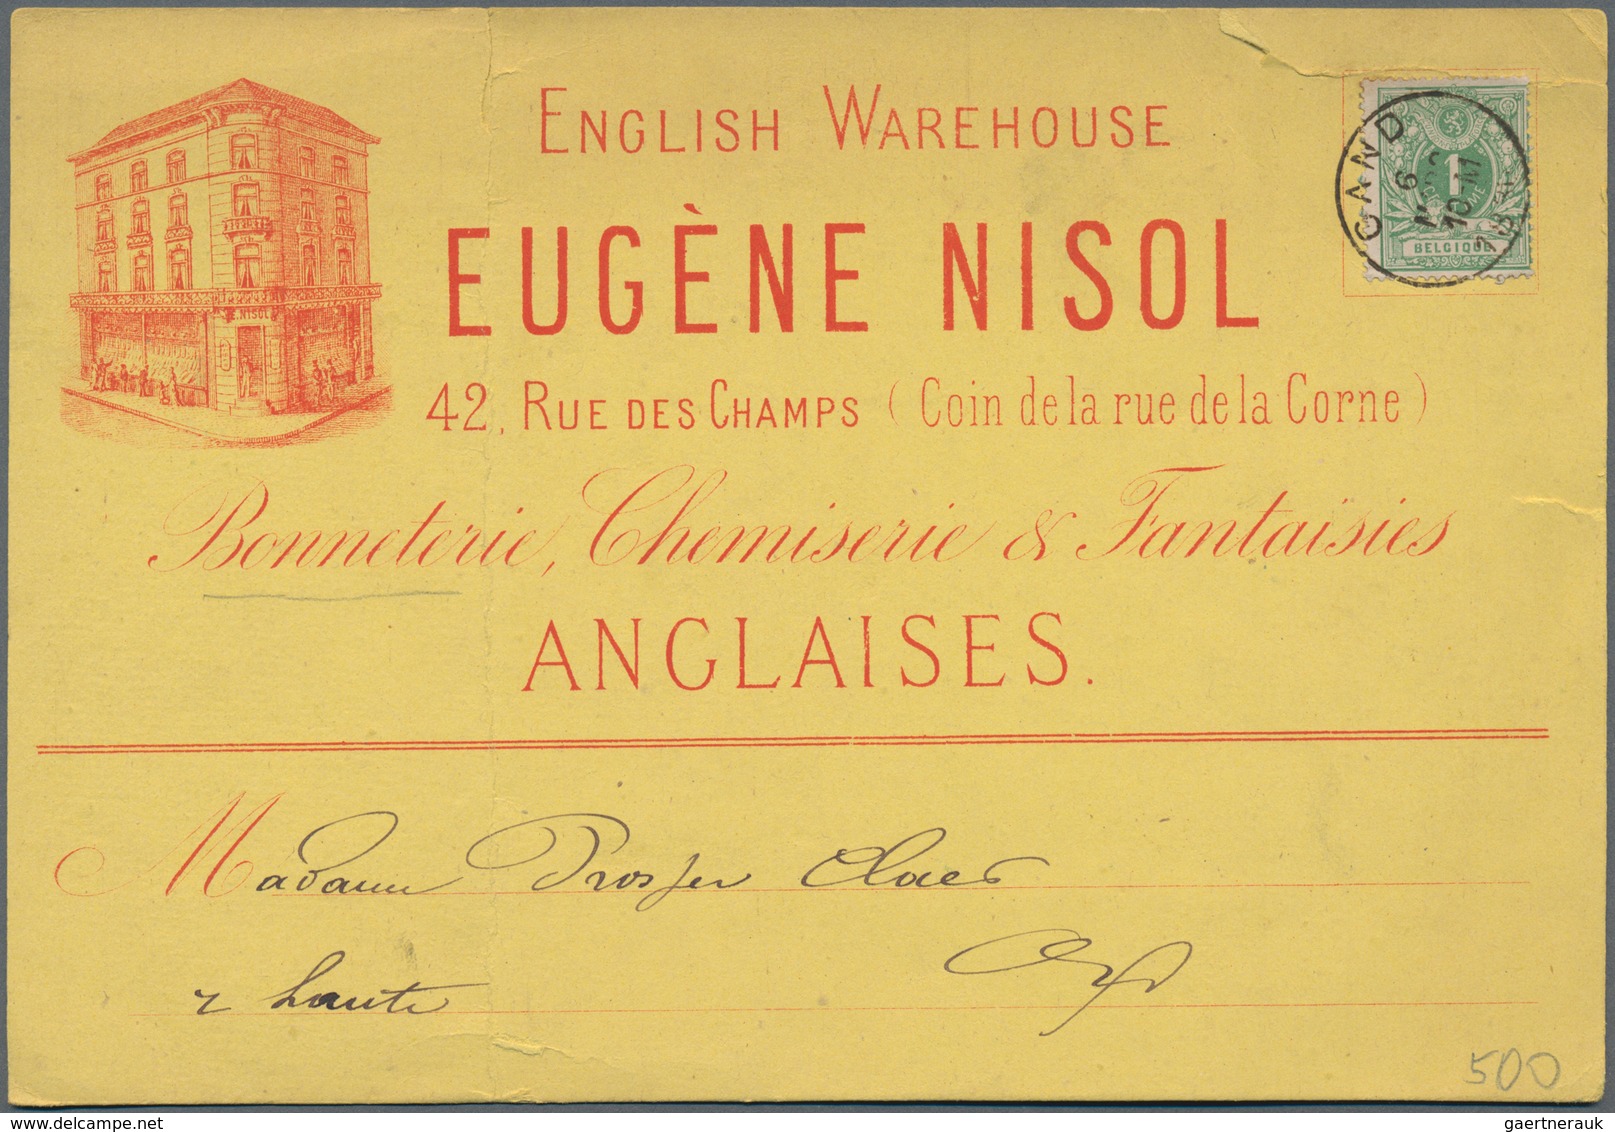 ENGLISH WAREHOUSE
EUGÈNE NISOL
E. NISOL
42, RUE DES CHAMPS (Coin de la rue de la Corne)
Bonneterie, Chemiserie & Fantaisies
ANGLAISES.
GAND
6
10-M
1
BELGIQUE
Madame Prosper Claes
r haute
500
gaertnerauk@delcampe.net